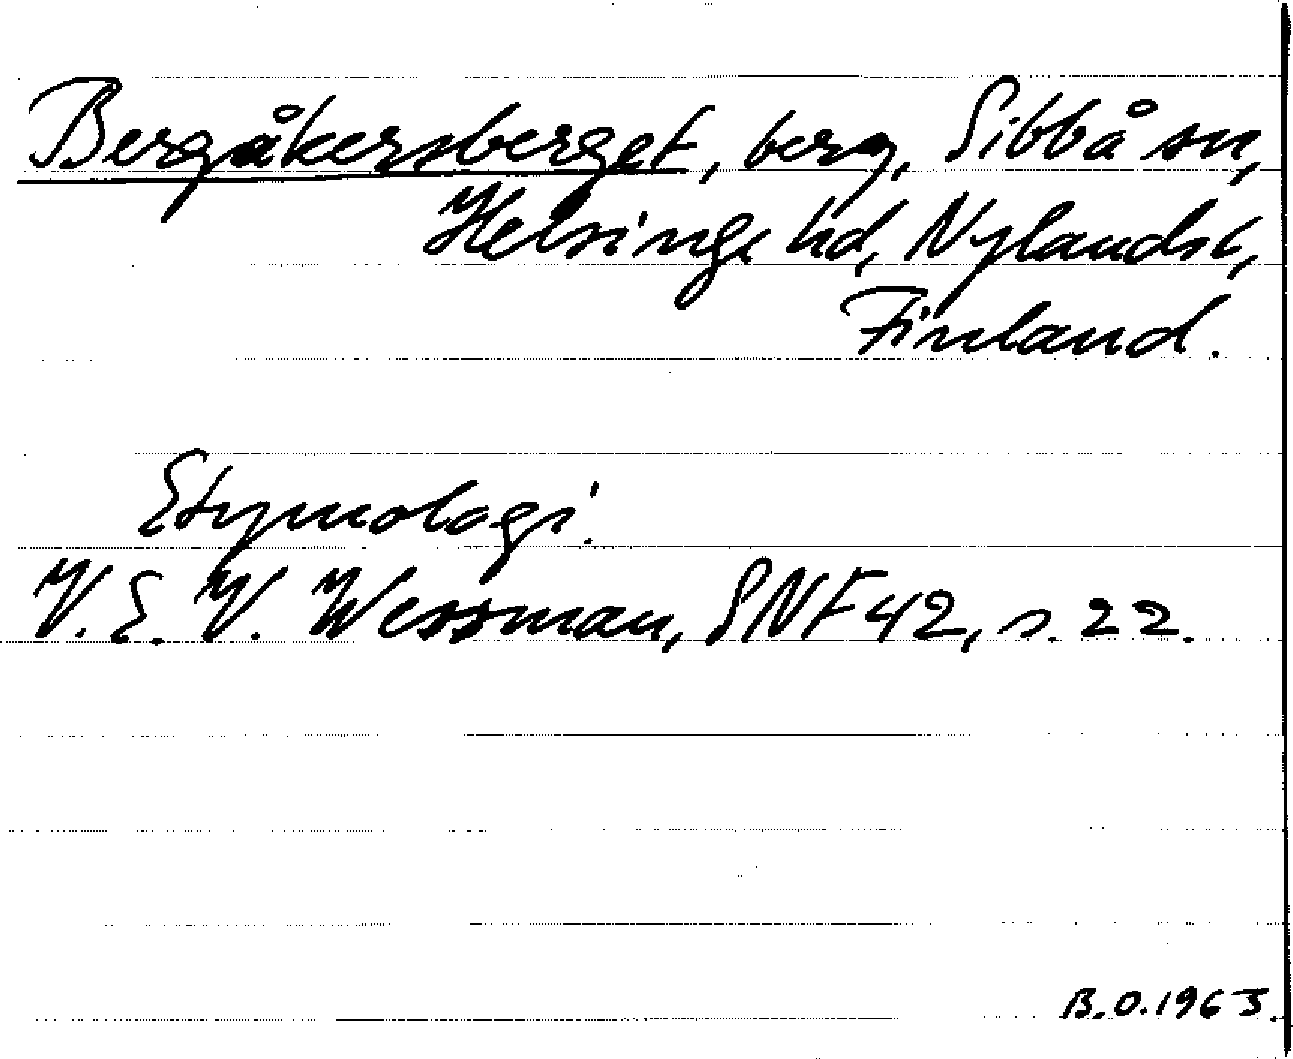 Bergåkersberget, berg, Sibbå sn,
Helsinge hd, Nylands l,
Finland.
Etymologi.
V. E. V. Wessman, SNF 42, s. 22.
B.O. 1965.